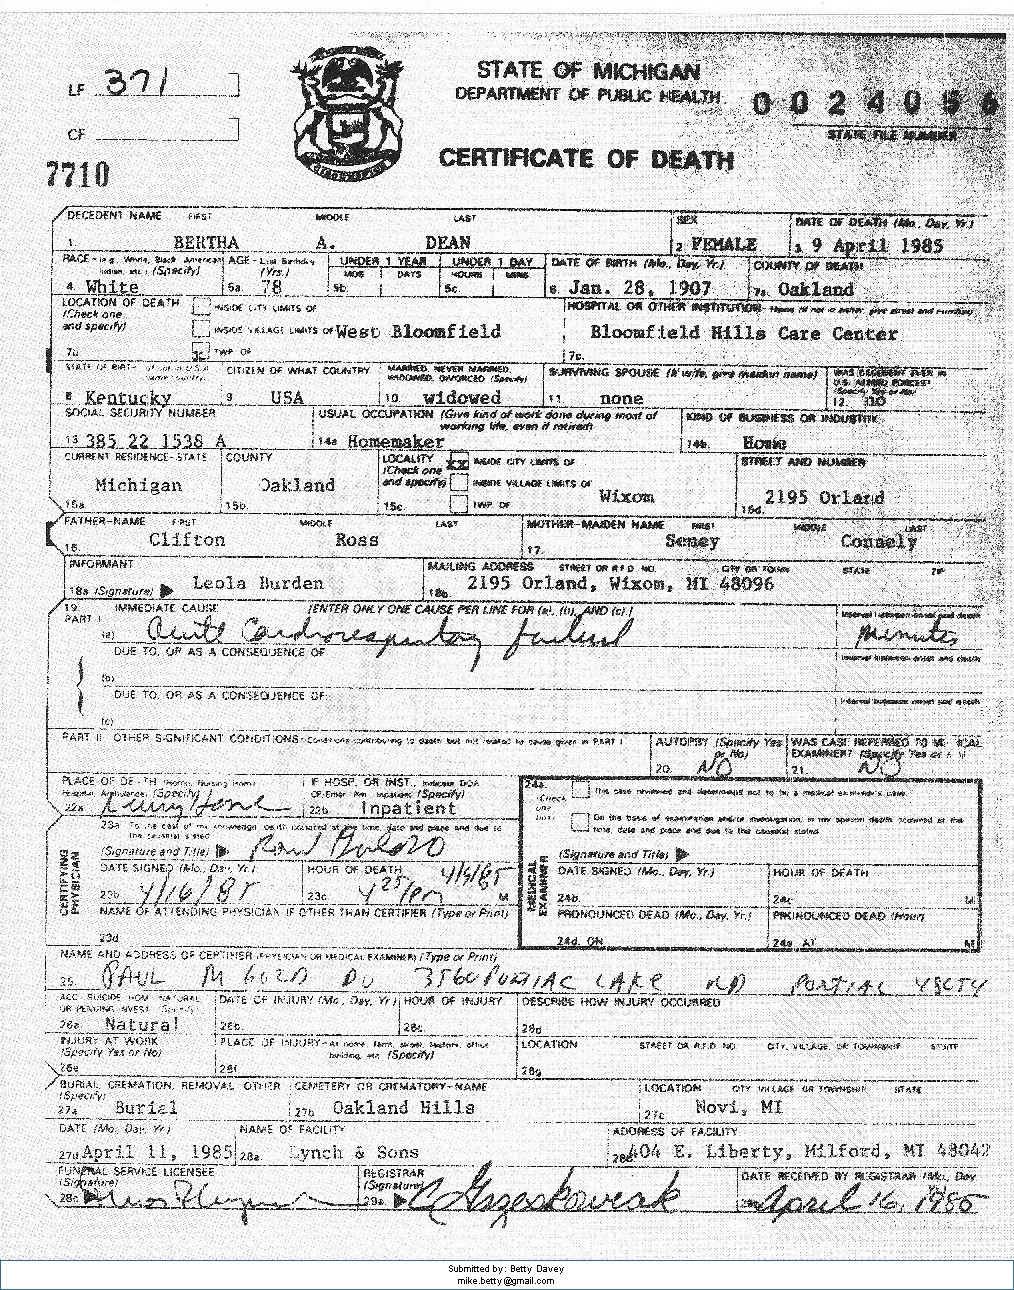 LF 371
STATE OF MICHIGAN
DEPARTMENT OF PUBLIC HEALTH
CF
STATE FILE NUMBER
7710
CERTIFICATE OF DEATH
DECEDENT NAME FIRST MIDDLE LAST SEX DATE OF DEATH (Mo., Day, Yr.)
1. BERTHA A. DEAN 2. FEMALE 3. 9 April 1985
RACE - (e.g., White, Black, American Indian, etc.) (Specify) AGE - Last Birthday (Yrs.) UNDER 1 YEAR UNDER 1 DAY DATE OF BIRTH (Mo., Day, Yr.) COUNTY OF DEATH
MOS DAYS HOURS MINS
4. White 5a. 78 5b. 5c. 6. Jan. 28, 1907 7a. Oakland
LOCATION OF DEATH (Check one and specify) INSIDE CITY LIMITS OF HOSPITAL OR OTHER INSTITUTION - Name (If not in either, give street and number)
INSIDE VILLAGE LIMITS OF West Bloomfield Bloomfield Hills Care Center
7b. TWP OF 7c.
STATE OF BIRTH CITIZEN OF WHAT COUNTRY MARRIED, NEVER MARRIED, WIDOWED, DIVORCED (Specify) SURVIVING SPOUSE (If wife, give maiden name) WAS DECEDENT EVER IN U.S. ARMED FORCES? (Specify Yes or No)
8. Kentucky 9. USA 10. widowed 11. none 12. no
SOCIAL SECURITY NUMBER USUAL OCCUPATION (Give kind of work done during most of working life, even if retired) KIND OF BUSINESS OR INDUSTRY
13. 385 22 1538 A 14a. Homemaker 14b. Home
CURRENT RESIDENCE-STATE COUNTY LOCALITY (Check one and specify) xx INSIDE CITY LIMITS OF STREET AND NUMBER
INSIDE VILLAGE LIMITS OF
15a. Michigan 15b. Oakland 15c. TWP OF Wixom 15d. 2195 Orland
FATHER-NAME FIRST MIDDLE LAST MOTHER-MAIDEN NAME FIRST MIDDLE LAST
16. Clifton Ross 17. Semey Connely
INFORMANT MAILING ADDRESS STREET OR R.F.D. NO. CITY OR TOWN STATE ZIP
18a. (Signature) Leola Burden 18b. 2195 Orland, Wixom, MI 48096
19. PART I IMMEDIATE CAUSE (ENTER ONLY ONE CAUSE PER LINE FOR (a), (b), AND (c).) Interval between onset and death
(a) Acute Cardiorespiratory failure minutes
DUE TO, OR AS A CONSEQUENCE OF Interval between onset and death
(b)
DUE TO, OR AS A CONSEQUENCE OF: Interval between onset and death
(c)
PART II OTHER SIGNIFICANT CONDITIONS - Conditions contributing to death but not related to cause given in PART I AUTOPSY (Specify Yes or No) WAS CASE REFERRED TO MEDICAL EXAMINER? (Specify Yes or No)
20. NO 21. NO
PLACE OF DEATH (Home, Nursing Home, Hospital, Ambulance) (Specify) IF HOSP. OR INST., Indicate DOA, OP/Emer. Rm., Inpatient (Specify)
22a. Nursing Home 22b. Inpatient
CERTIFYING PHYSICIAN
23a. To the best of my knowledge, death occurred at the time, date and place and due to the cause(s) stated
(Signature and Title)
DATE SIGNED (Mo., Day, Yr.) HOUR OF DEATH 4/9/85
23b. 4/16/85 23c. 4 25 pm M
NAME OF ATTENDING PHYSICIAN IF OTHER THAN CERTIFIER (Type or Print)
23d
MEDICAL EXAMINER
24a. (Check one box) This case reviewed and determined not to be a medical examiner's case.
On the basis of examination and/or investigation, in my opinion death occurred at the time, date and place and due to the cause(s) stated
(Signature and Title)
DATE SIGNED (Mo., Day, Yr.) HOUR OF DEATH
24b. 24c. M
PRONOUNCED DEAD (Mo., Day, Yr.) PRONOUNCED DEAD (Hour)
24d. ON 24e. AT M
NAME AND ADDRESS OF CERTIFIER (PHYSICIAN OR MEDICAL EXAMINER) (Type or Print)
25. PAUL M GOLD DO 3560 PONTIAC LAKE RD PONTIAC 48054
ACC., SUICIDE, HOM., NATURAL OR PENDING INVEST. (Specify) DATE OF INJURY (Mo., Day, Yr.) HOUR OF INJURY DESCRIBE HOW INJURY OCCURRED
26a. Natural 26b. 26c. 26d.
INJURY AT WORK (Specify Yes or No) PLACE OF INJURY - At home, farm, street, factory, office building, etc. (Specify) LOCATION STREET OR R.F.D. NO. CITY, VILLAGE, OR TOWNSHIP STATE
26e. 26f. 26g.
BURIAL, CREMATION, REMOVAL, OTHER (Specify) CEMETERY OR CREMATORY-NAME LOCATION CITY, VILLAGE OR TOWNSHIP STATE
27a. Burial 27b. Oakland Hills 27c. Novi, MI
DATE (Mo., Day, Yr.) NAME OF FACILITY ADDRESS OF FACILITY
27d. April 11, 1985 28a. Lynch & Sons 28b. 404 E. Liberty, Milford, MI 48042
FUNERAL SERVICE LICENSEE (Signature) REGISTRAR (Signature) DATE RECEIVED BY REGISTRAR (Mo., Day, Yr.)
28c. 29a. 29b. April 16, 1985
Submitted by: Betty Davey
mike.betty@gmail.com